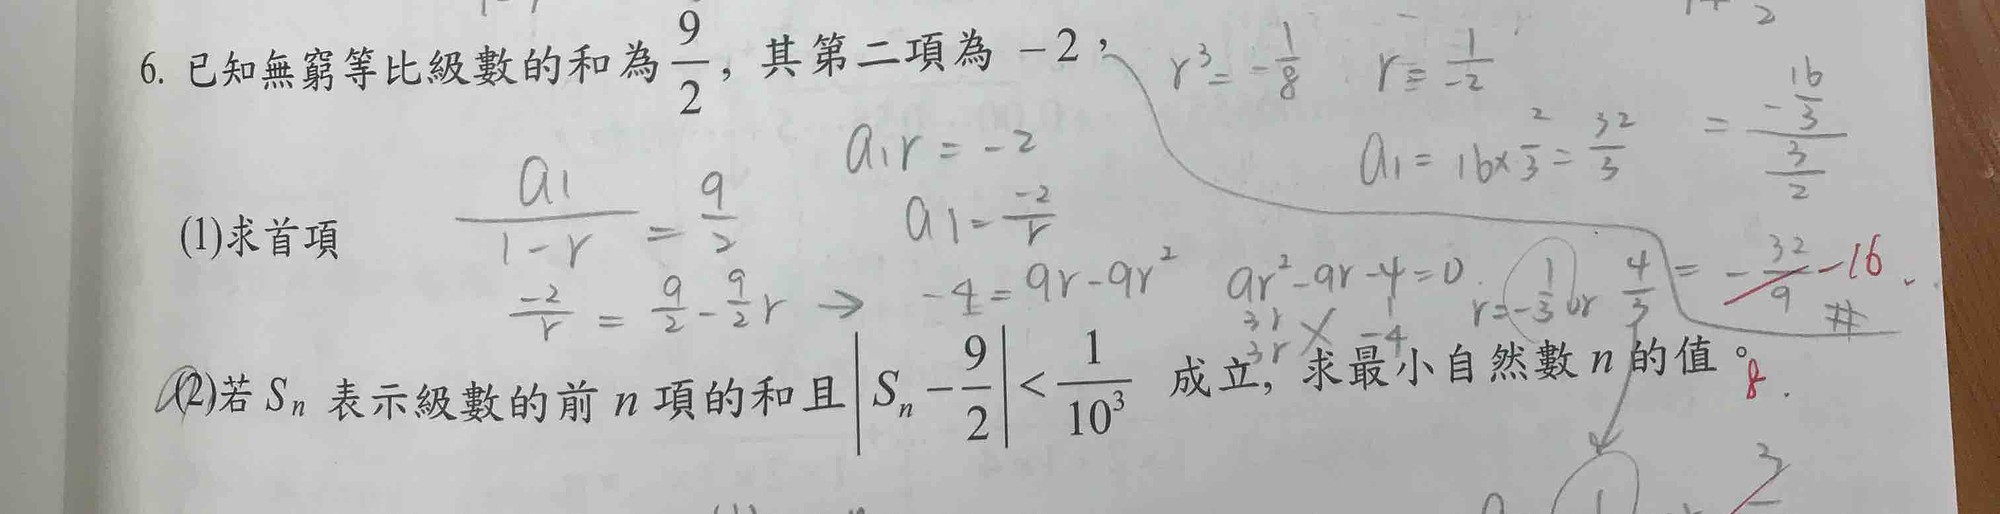 6. 已知無窮等比級數的和為 9/2, 其第二項為 −2,
r³ = -1/8 r = 1/-2
a₁r = -2
a₁ = 16×2/3 = 32/3
= -16/3 / 3/2
(1)求首項
a₁/1-r = 9/2
a₁ = -2/r
-2/r = 9/2 - 9/2 r → -4 = 9r - 9r² 9r² - 9r - 4 = 0 r = -1/3 or 4/3
3r 1
3r -4
= -32/9 -16 .
#
(2)若 Sₙ 表示級數的前 n 項的和且 |Sₙ − 9/2| < 1/10³ 成立, 求最小自然數 n 的值。
8 .